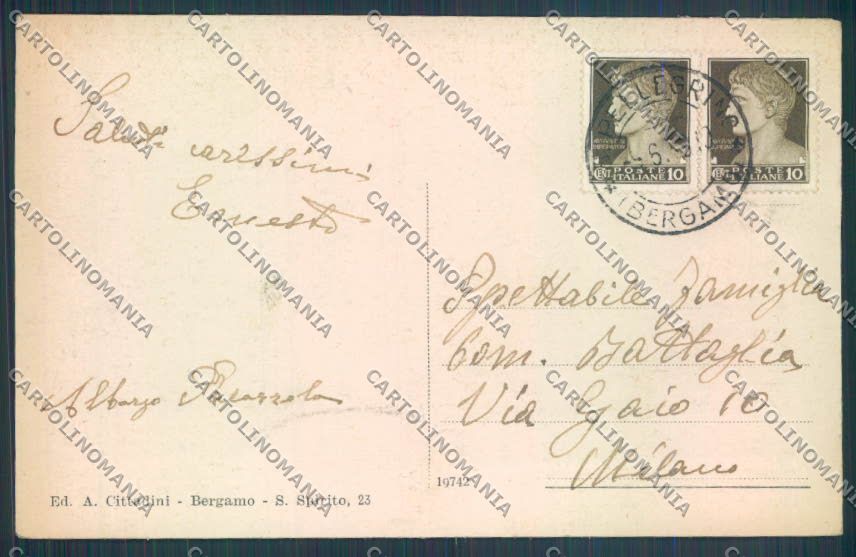 Saluti carissimi
Ernesto
Albergo Piazzola
Ed. A. Cittadini - Bergamo - S. Spirito, 23
19742
PELLEGRINO
(BERGAMO)
POSTE ITALIANE
CENT 10
POSTE ITALIANE
CENT 10
Spettabile Famiglia
Com. Battaglia
Via Gaio 10
Milano
CARTOLINOMANIA